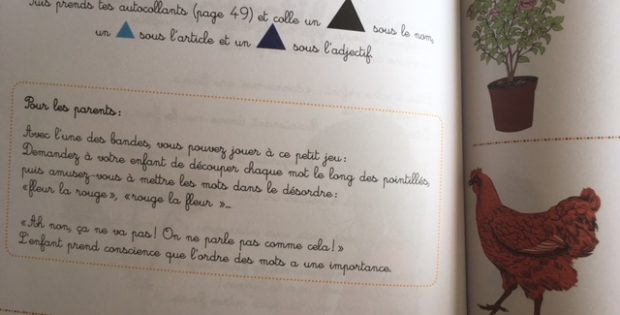 Puis prends tes autocollants (page 49) et colle un sous le nom,
un sous l'article et un sous l'adjectif.
Pour les parents :
Avec l'une des bandes, vous pouvez jouer à ce petit jeu :
Demandez à votre enfant de découper chaque mot le long des pointillés,
puis amusez-vous à mettre les mots dans le désordre :
«fleur la rouge», «rouge la fleur »...
«Ah non, ça ne va pas ! On ne parle pas comme cela !»
L'enfant prend conscience que l'ordre des mots a une importance.